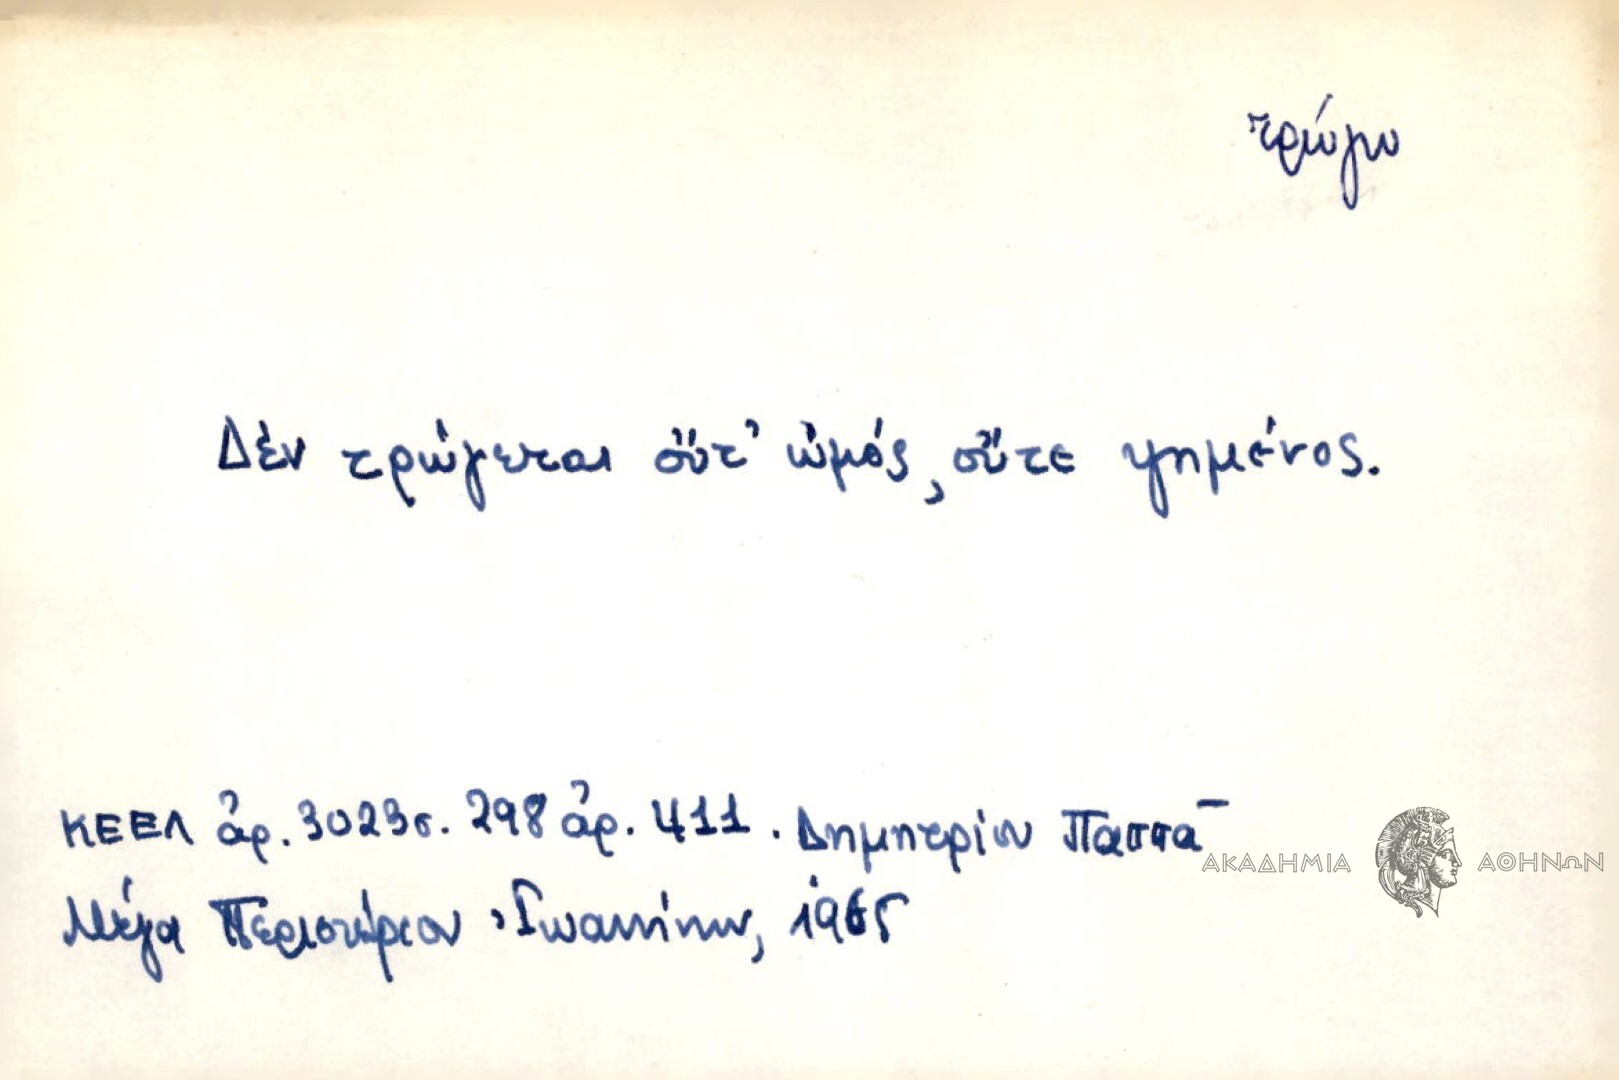 τρώγω
Δέν τρώγεται οὔτ' ὠμός, οὔτε ψημένος.
ΚΕΕΛ ἀρ. 3023 σ. 298 ἀρ. 411. Δημητρίου Παππᾶ
ΑΚΑΔΗΜΙΑ ΑΘΗΝΩΝ
Μέγα Περιστέριον Ἰωαννίνων, 1965